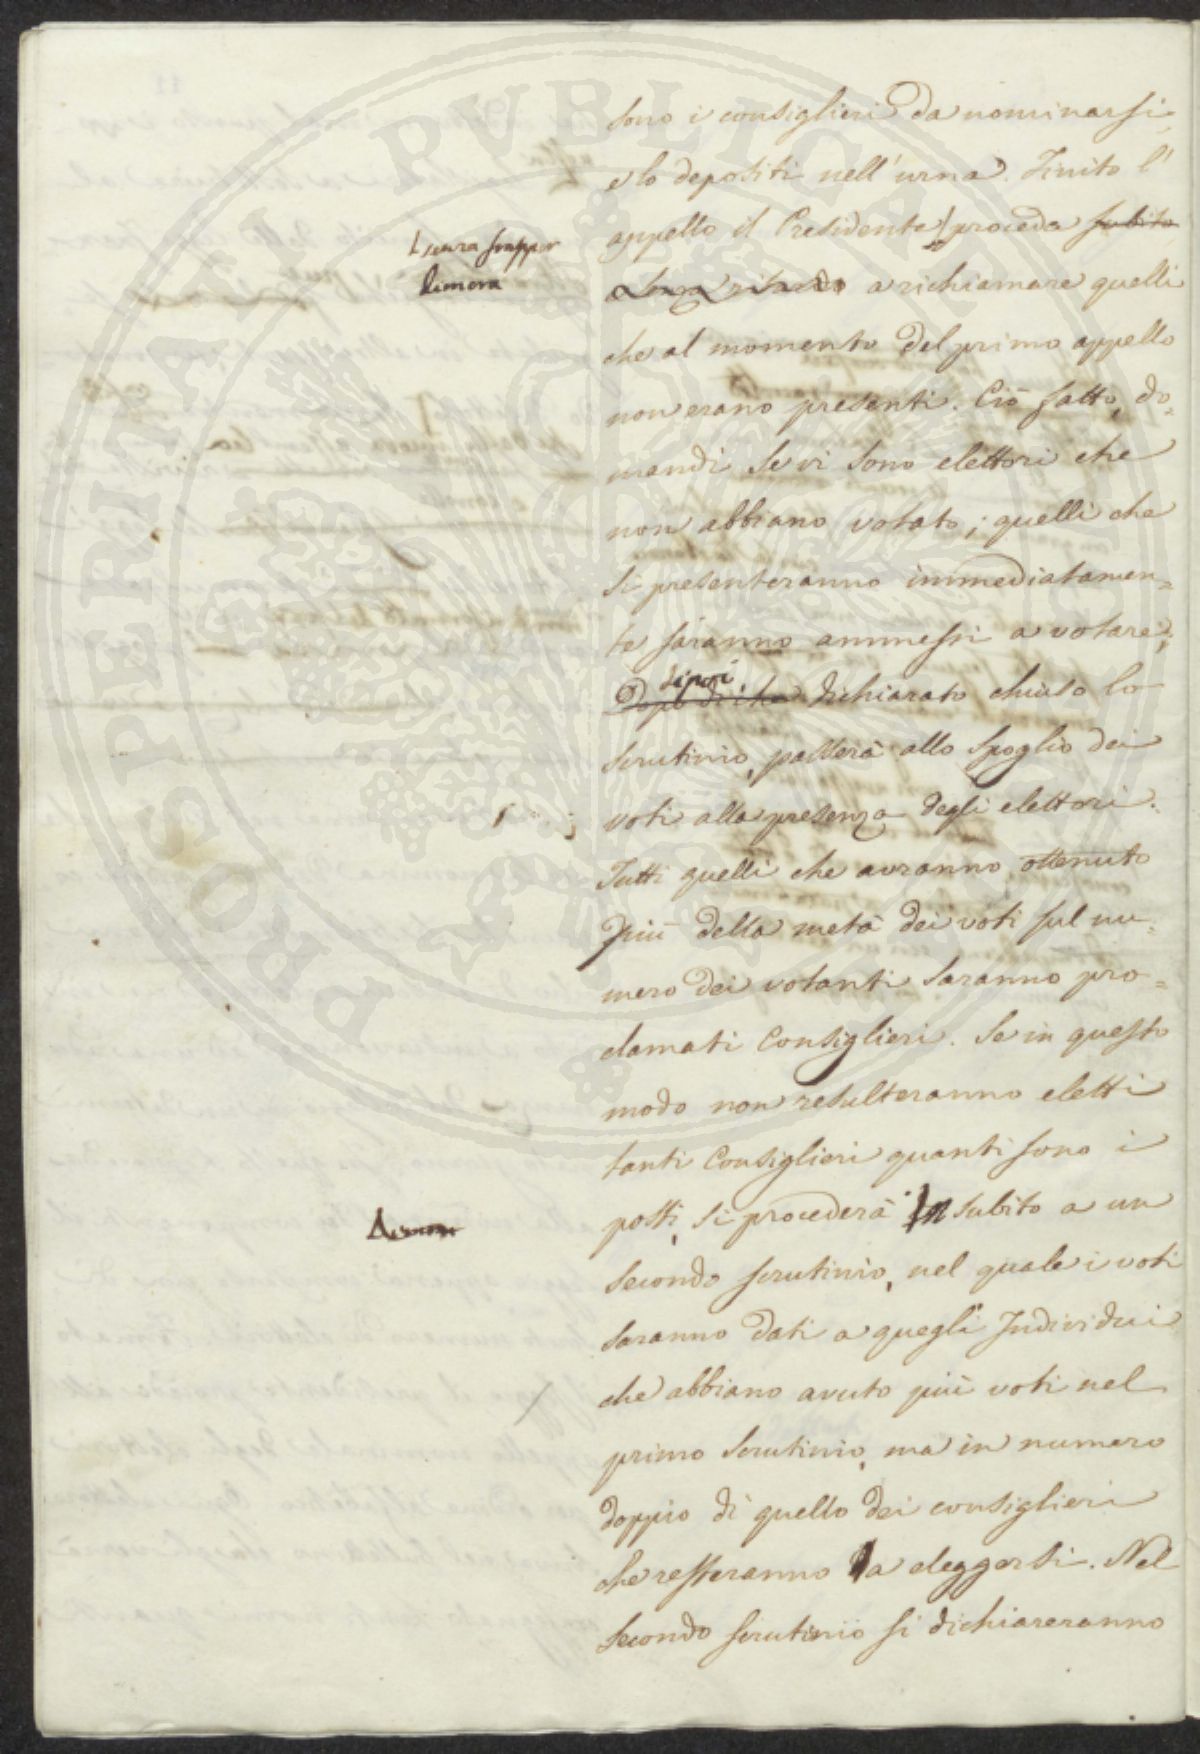 sono i consiglieri da nominarsi,
e lo depositi nell'urna. Finito l'
appello il Presidente proceda subito
senza ritardo a richiamare quelli
senza frappor
dimora
che al momento del primo appello
non erano presenti. Ciò fatto, do=
mandi se vi sono elettori che
non abbiano votato; quelli che
si presenteranno immediatamen=
te saranno ammessi a votare;
di poi,
Dopo di che dichiarato chiuso lo
scrutinio, passerà allo spoglio dei
voti alla presenza degli elettori.
Tutti quelli che avranno ottenuto
più della metà dei voti sul nu=
mero dei votanti saranno pro=
clamati Consiglieri. Se in questo
modo non resulteranno eletti
tanti Consiglieri quanti sono i
posti, si procederà subito a un
secondo scrutinio, nel quale i voti
saranno dati a quegli Individui
che abbiano avuto più voti nel
primo scrutinio, ma in numero
doppio di quello dei consiglieri
che resteranno da eleggersi. Nel
secondo scrutinio si dichiareranno
PROSPERITATI PUBLICAE